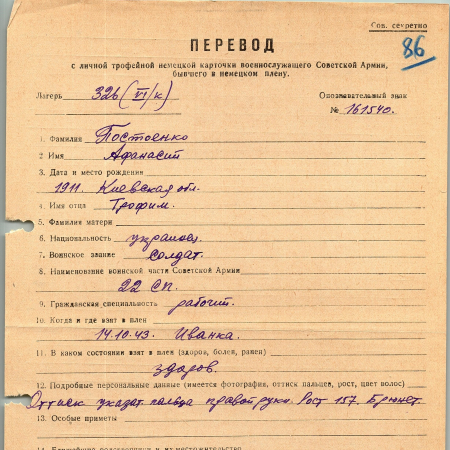 Сов. секретно
86
ПЕРЕВОД
с личной трофейной немецкой карточки военнослужащего Советской Армии,
бывшего в немецком плену.
Лагерь 326 (VI/к) Опознавательный знак
№ 161540.
1. Фамилия Постоенко
2 Имя Афанасий
3. Дата и место рождения
1911. Киевская обл.
4. Имя отца Трофим.
5. Фамилия матери
6. Национальность украинец.
7. Воинское звание солдат.
8. Наименование воинской части Советской Армии
22 СП.
9. Гражданская специальность рабочий.
10. Когда и где взят в плен
14.10.43. Иванка.
11. В каком состоянии взят в плен (здоров, болен, ранен)
здоров.
12. Подробные персональные данные (имеется фотография, оттиск пальцев, рост, цвет волос)
Оттиск указат. пальца правой руки. Рост 157. Брюнет
13. Особые приметы